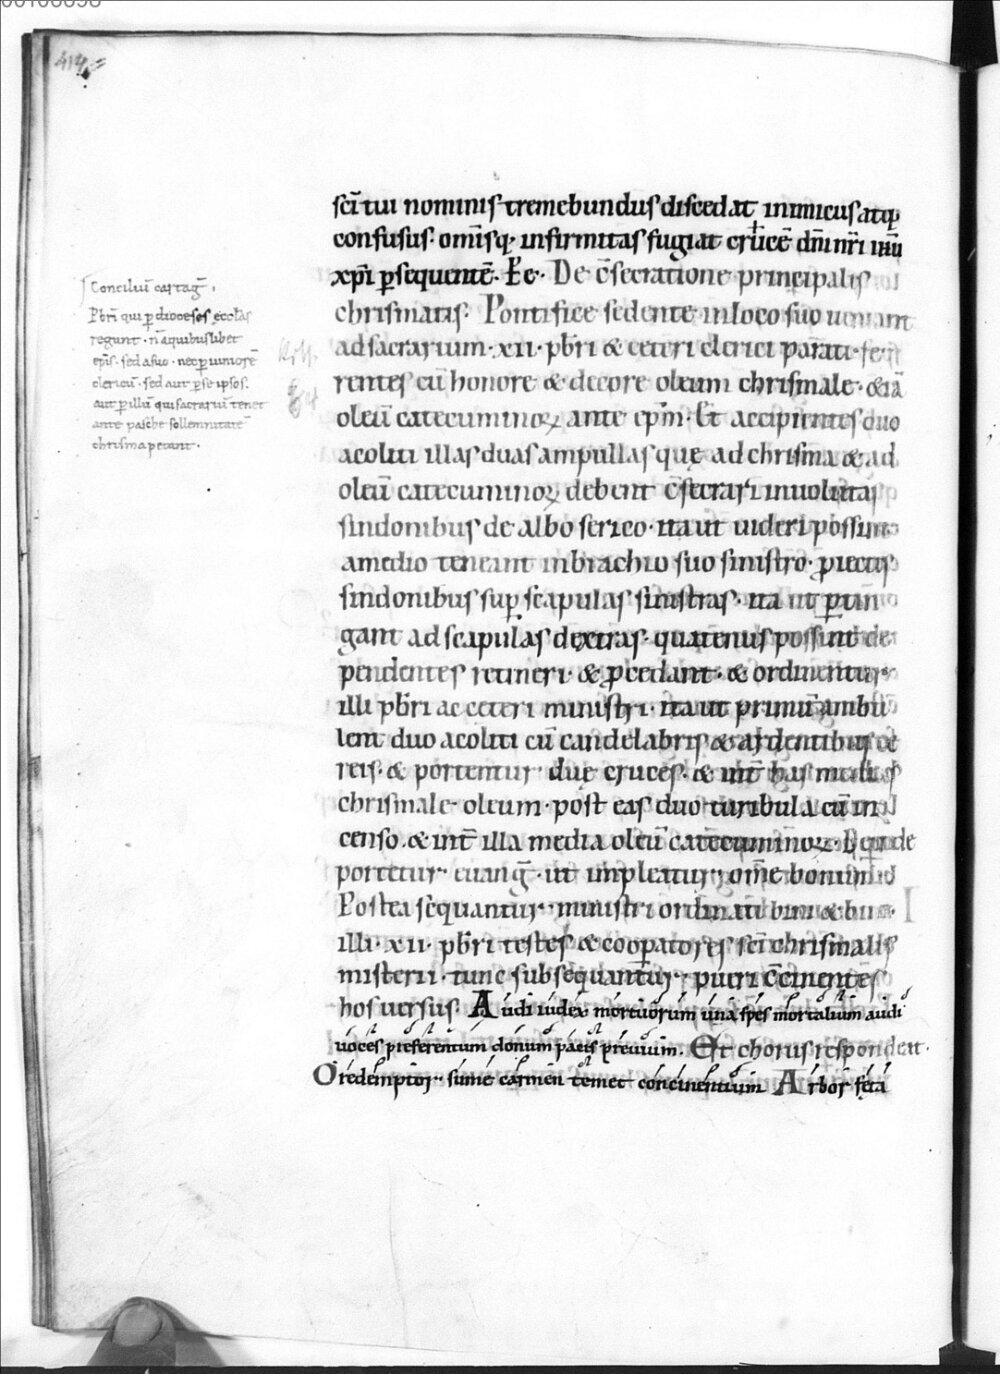 414
sc̄i tui nominis tremebundus discedat inimicus atq;
confusus. om̄isq; infirmitas fugiat cruce dn̄i nr̄i iħu
xp̄i ꝑsequente᷒. De c̄secratione principalis
chrismatis. Pontifice sedente in loco suo ueniant
ad sacrarium .xii. pb̄ri & ceteri clerici parati fe
rentes cū honore & decore oleum chrismale. & iā
oleū catecuminoꝝ ante ep̄m. Et accipientes duo
acoliti illas duas ampullas quę ad chrisma & ad
oleū catecuminoꝝ debent c̄secrari inuolutas
sindonibus de albo serico. ita ut uideri possint
a medio teneant in brachio suo sinistro. ꝓiectis
sindonibus suꝑ scapulas sinistras. ita ut ꝑtin
gant ad scapulas dextras. quatenus possint de
pendentes retineri. & ꝓcedant. & ordinentur
illi pb̄ri ac ceteri ministri. ita ut primū ambu
lent duo acoliti cū candelabris & ardentibus ce
reis. & portentur duę cruces. & int̄ has
chrismale oleum. post eas duo turibula cū in
censo. & int̄ illa media oleū catecuminoꝝ. Deinde
portetur euanḡ. ut impleatur om̄e bonum.
Postea sequantur ministri ordinati bini & bini.
illi .xii. pb̄ri testes & cooꝑatores sc̄i chrismalis
misterii. tunc subsequantur pueri c̄cinentes
hos uersus. Audi iudex mortuorum una spes mortalium audi
uoces proferentum donum pacis preuium. Et chorus respondeat.
O redemptor sume carmen temet concinentium Arbor fęta
Conciliū cartaḡ.
Pbr̄i qui ꝑ dioceses ęcclās
regunt. n̄ a quibuslibet
ep̄is. sed a suo. nec ꝑ iuniorē
clericū. sed aut ꝑ se ipsos.
aut ꝑ illū qui sacrariū tenet
ante pasche sollemnitatē
chrisma petant.